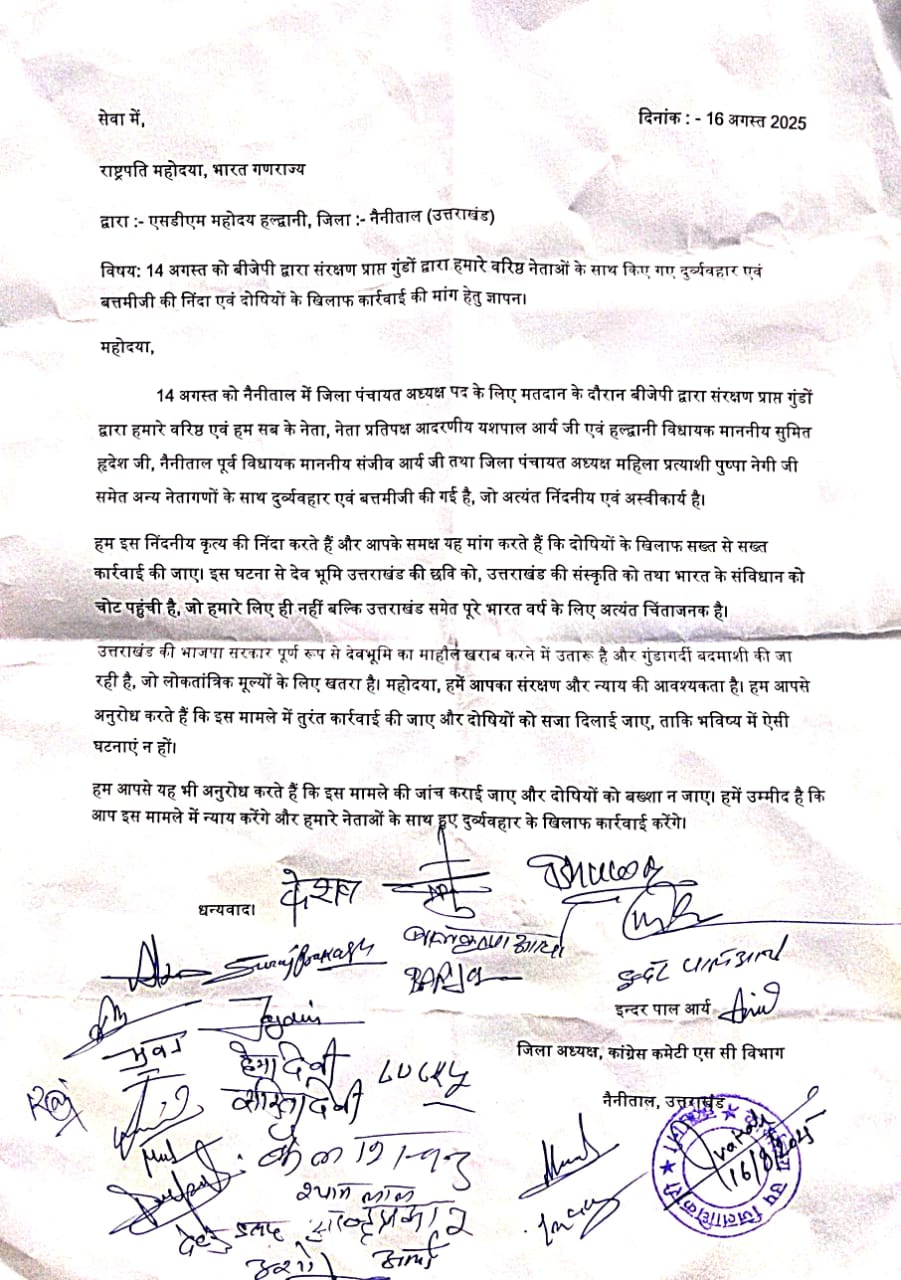 सेवा में,
दिनांक : - 16 अगस्त 2025
राष्ट्रपति महोदया, भारत गणराज्य
द्वारा :- एसडीएम महोदय हल्द्वानी, जिला :- नैनीताल (उत्तराखंड)
विषय: 14 अगस्त को बीजेपी द्वारा संरक्षण प्राप्त गुंडों द्वारा हमारे वरिष्ठ नेताओं के साथ किए गए दुर्व्यवहार एवं
बत्तमीजी की निंदा एवं दोषियों के खिलाफ कार्रवाई की मांग हेतु ज्ञापन।
महोदया,
14 अगस्त को नैनीताल में जिला पंचायत अध्यक्ष पद के लिए मतदान के दौरान बीजेपी द्वारा संरक्षण प्राप्त गुंडों
द्वारा हमारे वरिष्ठ एवं हम सब के नेता, नेता प्रतिपक्ष आदरणीय यशपाल आर्य जी एवं हल्द्वानी विधायक माननीय सुमित
हृदेश जी, नैनीताल पूर्व विधायक माननीय संजीव आर्य जी तथा जिला पंचायत अध्यक्ष महिला प्रत्याशी पुष्पा नेगी जी
समेत अन्य नेतागणों के साथ दुर्व्यवहार एवं बत्तमीजी की गई है, जो अत्यंत निंदनीय एवं अस्वीकार्य है।
हम इस निंदनीय कृत्य की निंदा करते हैं और आपके समक्ष यह मांग करते हैं कि दोषियों के खिलाफ सख्त से सख्त
कार्रवाई की जाए। इस घटना से देव भूमि उत्तराखंड की छवि को, उत्तराखंड की संस्कृति को तथा भारत के संविधान को
चोट पहुंची है, जो हमारे लिए ही नहीं बल्कि उत्तराखंड समेत पूरे भारत वर्ष के लिए अत्यंत चिंताजनक है।
उत्तराखंड की भाजपा सरकार पूर्ण रूप से देवभूमि का माहौल खराब करने में उतारू है और गुंडागर्दी बदमाशी की जा
रही है, जो लोकतांत्रिक मूल्यों के लिए खतरा है। महोदया, हमें आपका संरक्षण और न्याय की आवश्यकता है। हम आपसे
अनुरोध करते हैं कि इस मामले में तुरंत कार्रवाई की जाए और दोषियों को सजा दिलाई जाए, ताकि भविष्य में ऐसी
घटनाएं न हों।
हम आपसे यह भी अनुरोध करते हैं कि इस मामले की जांच कराई जाए और दोषियों को बख्शा न जाए। हमें उम्मीद है कि
आप इस मामले में न्याय करेंगे और हमारे नेताओं के साथ हुए दुर्व्यवहार के खिलाफ कार्रवाई करेंगे।
धन्यवाद।
Suraj Prakash
इन्दर पाल आर्य
हेमा देवी
जिला अध्यक्ष, कांग्रेस कमेटी एस सी विभाग
सरिता देवी
नैनीताल, उत्तराखंड
Raj
16/8/2025
श्याम लाल